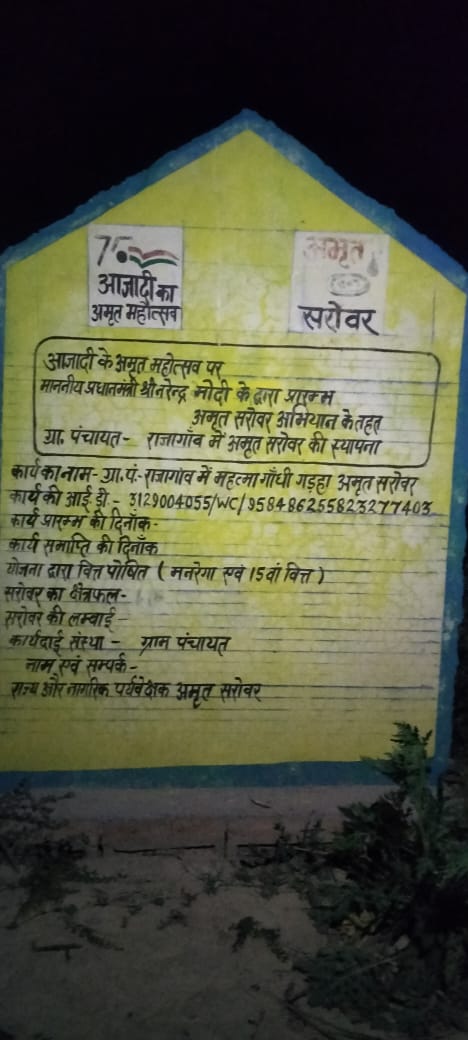 75
आज़ादी का
अमृत महोत्सव
अमृत
सरोवर
आजादी के अमृत महोत्सव पर
माननीय प्रधानमंत्री श्री नरेन्द्र मोदी के द्वारा प्रारम्भ
अमृत सरोवर अभियान के तहत
ग्रा. पंचायत- राजागाँव में अमृत सरोवर की स्थापना
कार्य का नाम- ग्रा.पं.- राजागांव में महत्मा गाँधी गड्हा अमृत सरोवर
कार्य की आई डी.- 3129004055/WC/958486255823277403
कार्य प्रारम्भ की दिनाँक-
कार्य समाप्ति की दिनाँक
योजना द्वारा वित्त पोषित ( मनरेगा एवं 15वां वित्त )
सरोवर का क्षेत्रफल-
सरोवर की लम्बाई-
कार्यदाई संस्था - ग्राम पंचायत
नाम एवं सम्पर्क-
राज्य और नागरिक पर्यवेक्षक अमृत सरोवर